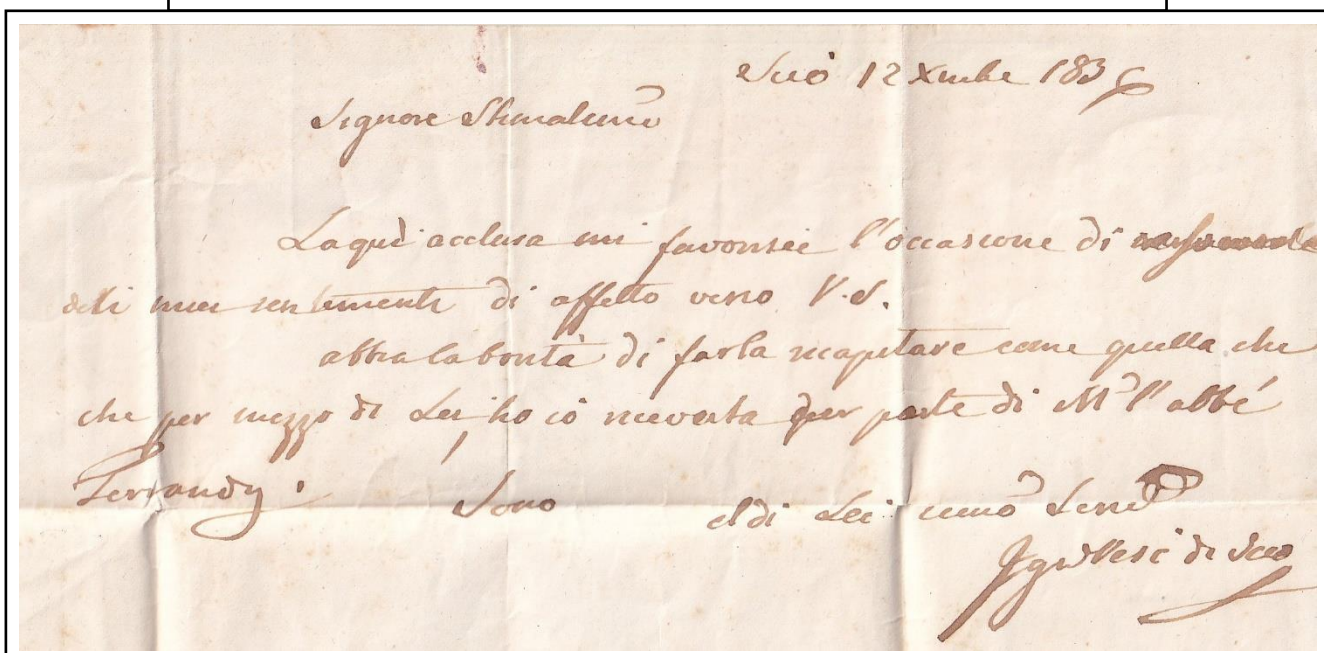 Scio 12 Xmbe 1836
Signore Stimatissimo
La qui acclusa mi favorisce l'occasione di
delli miei sentimenti di affetto verso V.S.
abbia la bontà di farla ricapitare come quella che
che per mezzo di Lei ho io ricevuta per parte di Mr l'abbé
Ferrandy.
Sono di Lei
di Scio